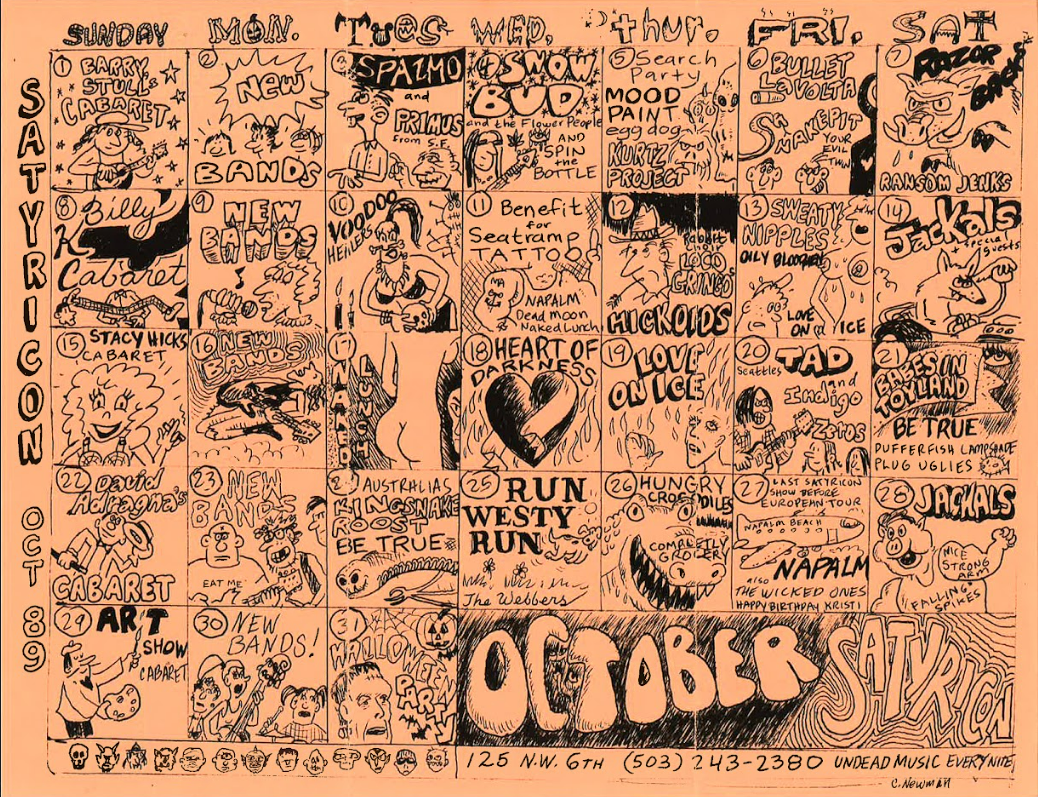 SUNDAY MON. TUES WED. thur. FRI. SAT
SATYRICON OCT 89
1 BARRY
STULL'S
CABARET
2
New
BANDS
3
SPAZMO
and
PRIMUS
from S.F.
4 SNOW
BUD
and the Flower People
AND
SPIN
the
BOTTLE
5 Search
Party
MOOD
PAINT
egg dog
KURTZ
PROJECT
6 BULLET
LaVOLTA
SNAKEPIT
YOUR
EVIL
TWIN
7
RAZOR
BACKS
RANSOM JENKS
8 Billy
K
Cabaret
9 NEW
BANDS
10
VOODOO
HEALERS
11 Benefit
for
Seatramp
TATTOO
MA
NAPALM
Dead Moon
Naked Lunch
12
LOCO
GRINGOS
HICKOIDS
13 SWEATY
NIPPLES
OILY BLOODMEN
LOVE
ON ICE
14
JACKALS
+ special
guests
15 STACY HICKS
CABARET
16 NEW
BANDS
17
NAKED
LUNCH
18 HEART OF
DARKNESS
19 LOVE
ON ICE
20 TAD
Seattles
and
Indigo
Zeros
21
BABES IN
TOYLAND
BE TRUE
PUFFERFISH LAMPSHADE
PLUG UGLIES
22 David
Adragna's
CABARET
23 NEW
BANDS
EAT ME
24 AUSTRALIAS
KINGSNAKE
ROOST
BE TRUE
25 RUN
WESTY
RUN
The Webbers
26 HUNGRY
CROCODILES
COMPLETELY
GROCERY
27 LAST SATYRICON
SHOW BEFORE
EUROPEAN TOUR
NAPALM BEACH
NAPALM
also
THE WICKED ONES
HAPPY BIRTHDAY KRISTI
28 JACKALS
NICE
STRONG
ARM
FALLING
SPIKES
29 ART
SHOW
CABARET
30 NEW
BANDS!
31
HALLOWEEN
PARTY
OCTOBER SATYRICON
125 N.W. 6TH (503) 243-2380 UNDEAD MUSIC EVERY NITE
C. Newman